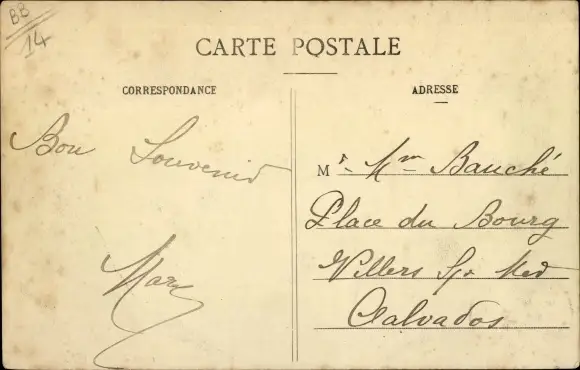 BB
14
CARTE POSTALE
CORRESPONDANCE
ADRESSE
Bon Souvenir
Mary
Mr. Mm Bauché
Place du Bourg
Villers Sr Mer
Calvados